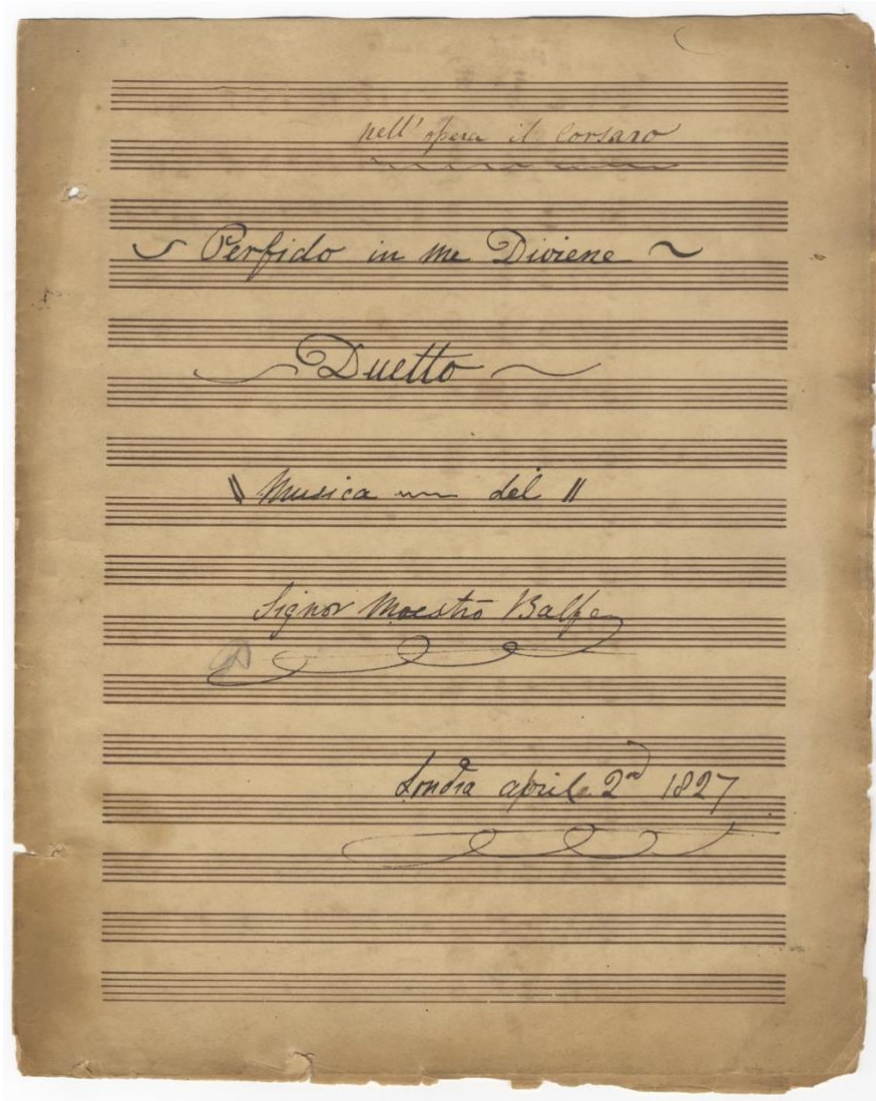 nell' opera il Corsaro
Perfido in me Diviene
Duetto
Musica del
Signor Maestro Balfe
Londra aprile 2nd 1827